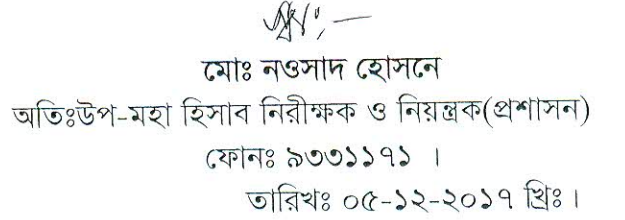 স্বাঃ-
মোঃ নওসাদ হোসনে
অতিঃউপ-মহা হিসাব নিরীক্ষক ও নিয়ন্ত্রক(প্রশাসন)
ফোনঃ ৯৩৩১১৭১ ।
তারিখঃ ০৫-১২-২০১৭ খ্রিঃ।